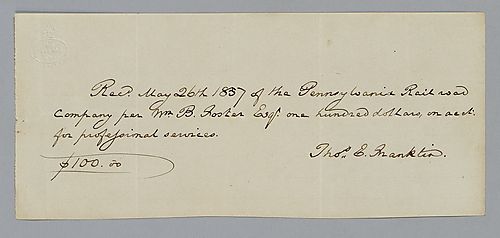 Recd. May 26th 1857 of the Pennsylvania Rail road
Company per Wm B. Foster Esqr. one hundred dollars, on acct.
for professional services.
$100.00
Thos. E. Franklin.